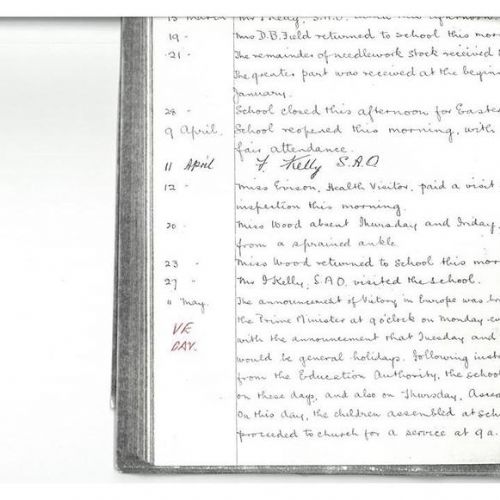 13 March Mr F Kelly, S.A.O.
19 " Mrs D.B. Field returned to school this morn
21 " The remainder of needlework stock received
The greater part was received at the begin
January.
28 " School closed this afternoon for Easte
9 April. School reopened this morning, with
fair attendance.
11 April F. Kelly S.A.O
12 " Miss Evison, Health Visitor, paid a visit
inspection this morning
20 " Miss Wood absent Thursday and Friday,
from a sprained ankle
23 " Miss Wood returned to school this mor
27 " Mr F Kelly, S.A.O, visited the school.
11 May. The announcement of Victory in Europe was
the Prime Minister at 9 o'clock on Monday
VE with the announcement that Tuesday and
DAY. would be general holidays. Following inst
from the Education Authority, the school
on these days, and also on Thursday, Asce
On this day, the children assembled at sch
proceeded to church for a service at 9 a.